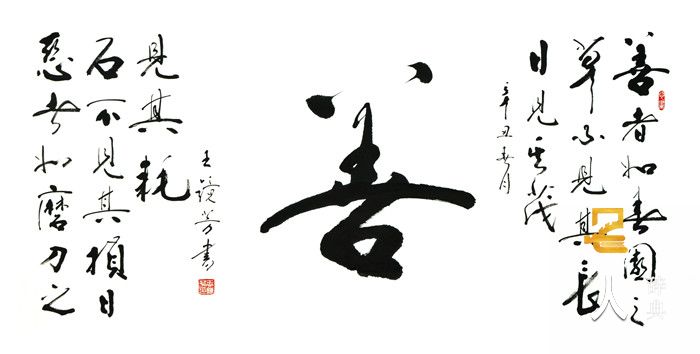 善者如春園之
草不見其長
日見其茂
辛丑春月
善
惡者如磨刀之
石不見其損日
見其耗
王鏡芳書
人
辞典